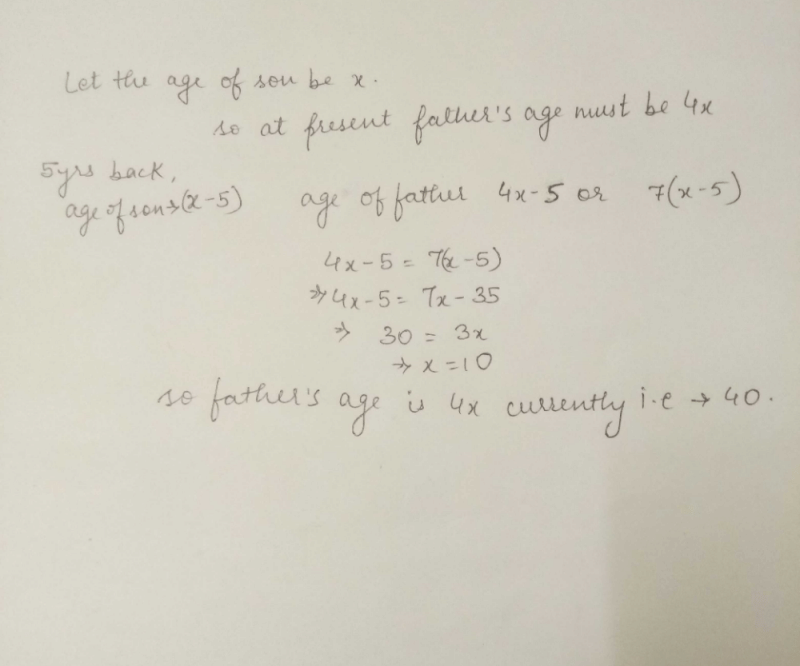 Let the age of son be x.
so at present father's age must be 4x
5yrs back,
age of son → (x-5) age of father 4x-5 or 7(x-5)
4x-5 = 7(x-5)
⇒ 4x-5 = 7x-35
⇒ 30 = 3x
→ x = 10
so father's age is 4x currently i.e → 40.